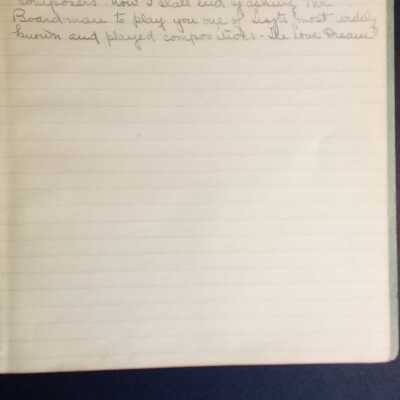 composers. Now I shall end by asking Mr.
Boardman to play you one of Liszts most widely
known and played compositions - The Love Dream